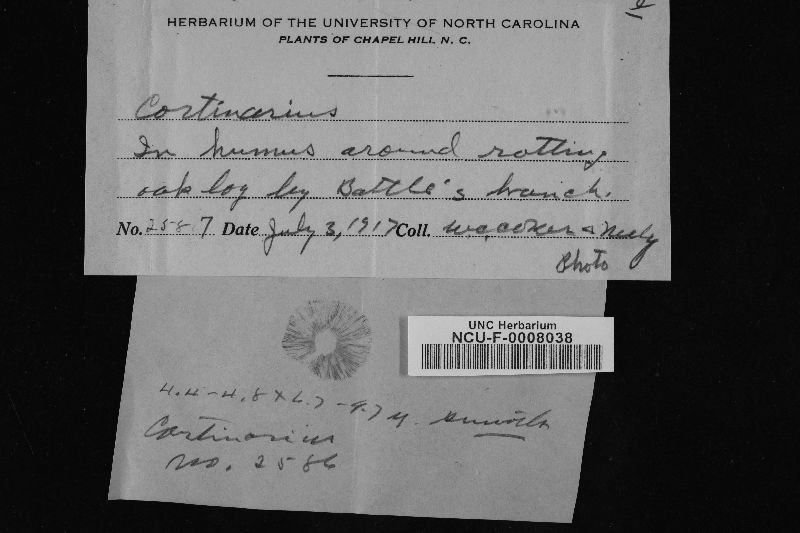 HERBARIUM OF THE UNIVERSITY OF NORTH CAROLINA
PLANTS OF CHAPEL HILL N. C.
Cortinarius
In humus around rotting
oak log by Battle's branch.
No. 2587 Date July 3, 1917 Coll. W.C. Coker & Neely
Photo
UNC Herbarium
NCU-F-0008038
4.4-4.8 x 6.7-9.7 µ. smooth
Cortinarius
No. 2586